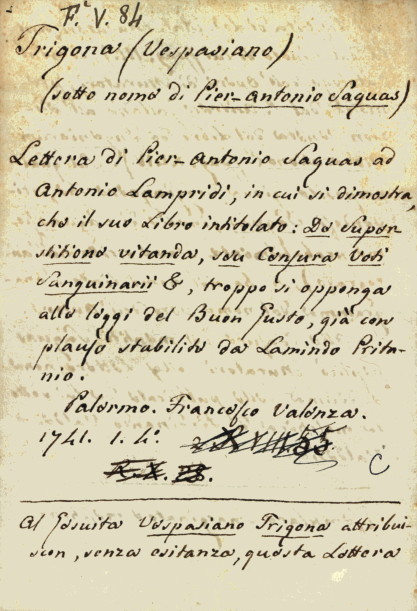 F.ª V. 84
Trigona (Vespasiano)
(sotto nome di Pier-Antonio Saguas)
Lettera di Pier-Antonio Saguas ad
Antonio Lampridi, in cui si dimostra,
che il suo Libro intitolato: De Super-
stitione vitanda, seu Censura Voti
Sanguinarii &, troppo si opponga
alle leggi del Buon Gusto, già con
plauso stabilite da Lamindo Prita-
nio.
Palermo. Francesco Valenza.
1741. 1. 4º.
C
Al Gesuita Vespasiano Trigona attribui-
scon, senza esitanza, questa Lettera